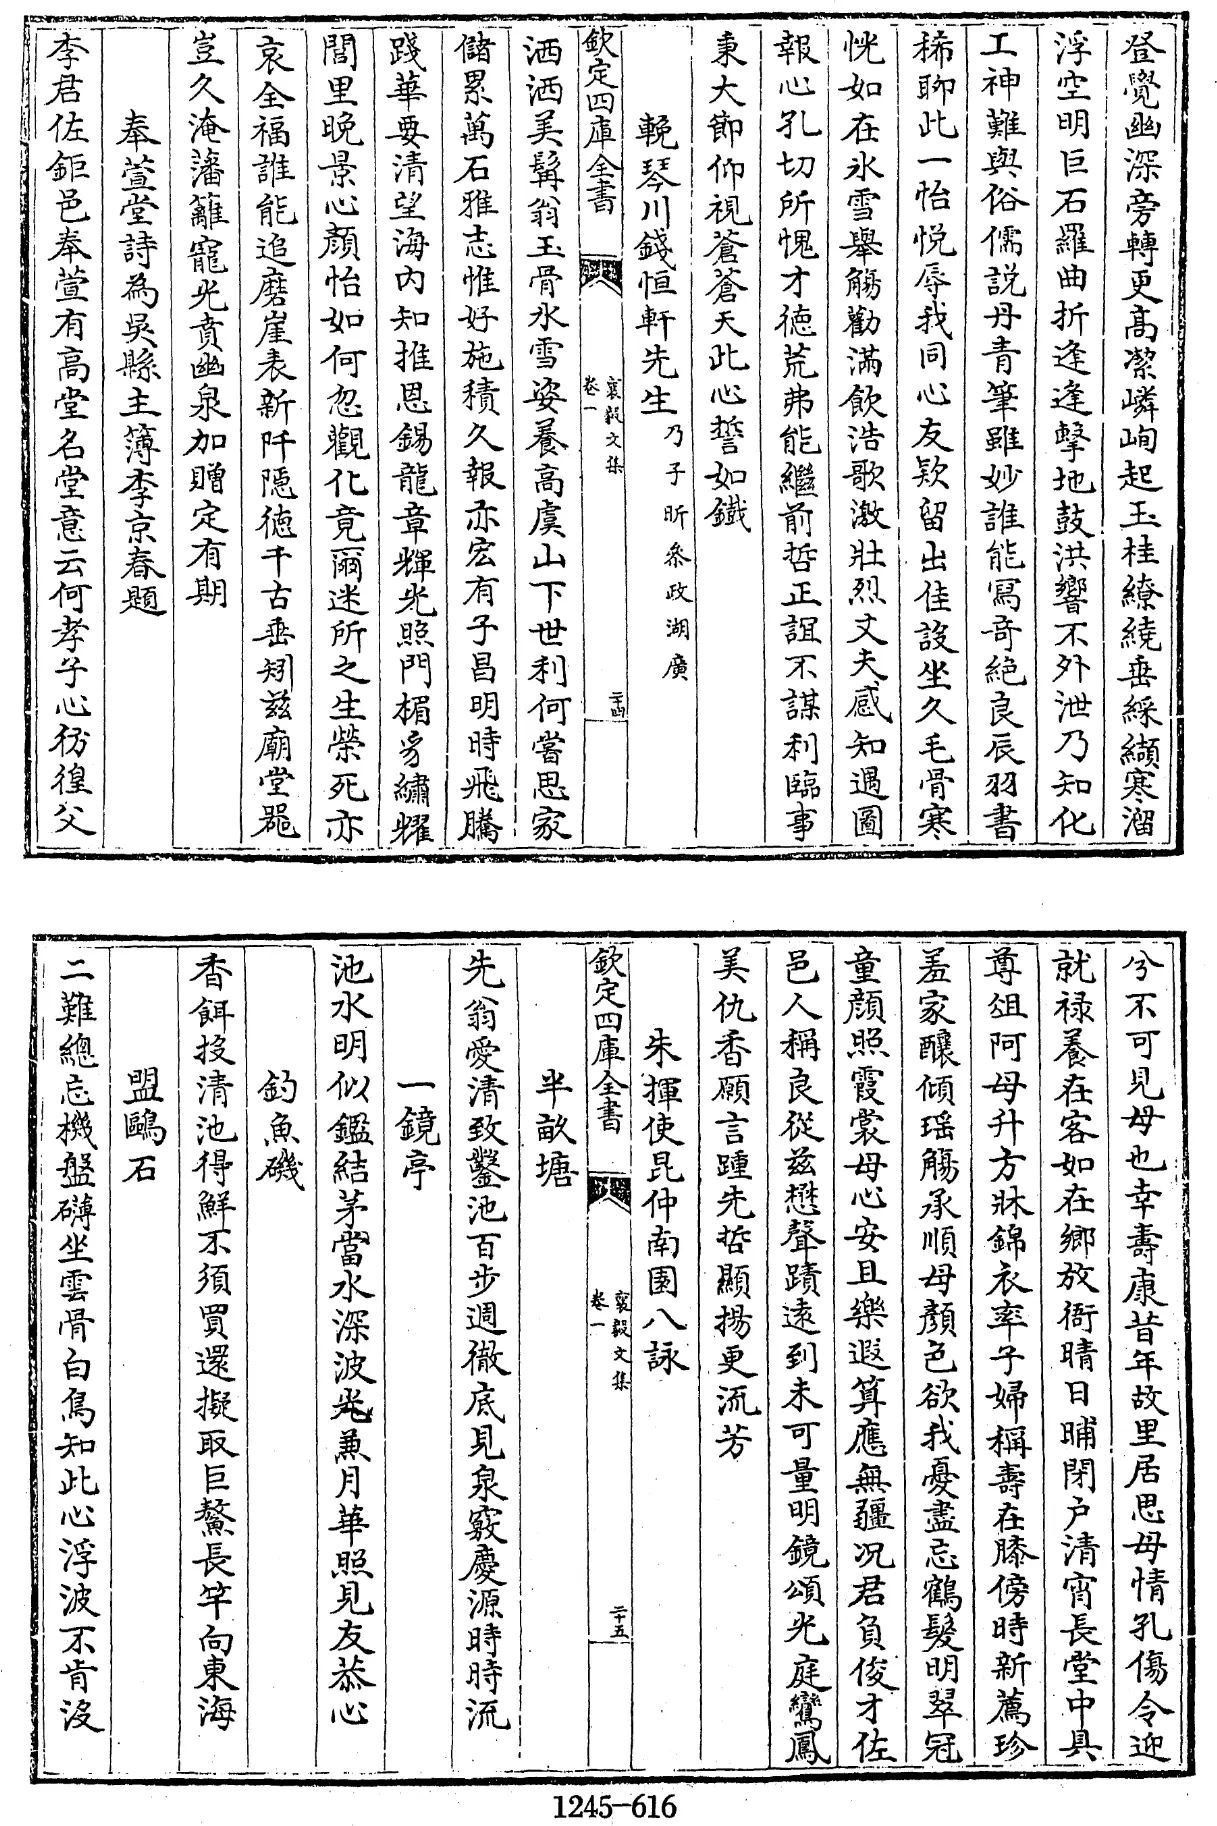 登覺幽深旁轉更高潔嶙峋起玉柱繚繞垂綵纈寒溜
浮空明巨石羅曲折逢逢擊地鼓洪響不外泄乃知化
工神難與俗儒説丹青筆雖妙誰能寫竒絶良辰羽書
稀聊此一怡悦辱我同心友欵留出佳設坐久毛骨寒
恍如在氷雪舉觴勸滿飲浩歌激壯烈丈夫感知遇圖
報心孔切所愧才徳荒弗能繼前哲正誼不謀利臨事
秉大節仰視蒼蒼天此心誓如鐵
輓琴川錢恒軒先生乃子昕叅政湖廣
欽定四庫全書
襄毅文集
卷一
二十四
洒洒美髯翁玉骨氷雪姿養高虞山下世利何嘗思家
儲累萬石雅志惟好施積久報亦宏有子昌明時飛騰
踐華要清望海内知推恩錫龍章輝光照門楣豸繡耀
閭里晩景心顔怡如何忽觀化竟爾迷所之生榮死亦
哀全福誰能追磨崖表新阡隠徳千古垂矧兹廟堂器
豈久淹藩籬寵光賁幽泉加贈定有期
奉萱堂詩為吳縣主簿李京春題
李君佐鉅邑奉萱有高堂名堂意云何孝子心彷徨父
兮不可見母也幸壽康昔年故里居思母情孔傷今迎
就禄養在客如在鄉放衙晴日晡閉户清宵長堂中具
尊俎阿母升方牀錦衣率子婦稱壽在膝傍時新薦珍
羞家釀傾瑶觴承順母顔色欲我憂盡忘鶴髮明翠冠
童顔照霞裳母心安且樂遐算應無疆况君負俊才佐
邑人稱良從兹懋聲蹟遠到未可量明鏡頌光庭鸞鳳
美仇香願言踵先哲顯揚更流芳
朱揮使昆仲南園八詠
欽定四庫全書
襄毅文集
卷一
二十五
半畝塘
先翁愛清致鑿池百步週徹底見泉竅慶源時時流
一鏡亭
池水明似鑑結茅當水深波光兼月華照見友恭心
釣魚磯
香餌投清池得鮮不須買還擬取巨鰲長竿向東海
盟鷗石
二難總忘機盤礴坐雲骨白鳥知此心浮波不肯没
1245-616